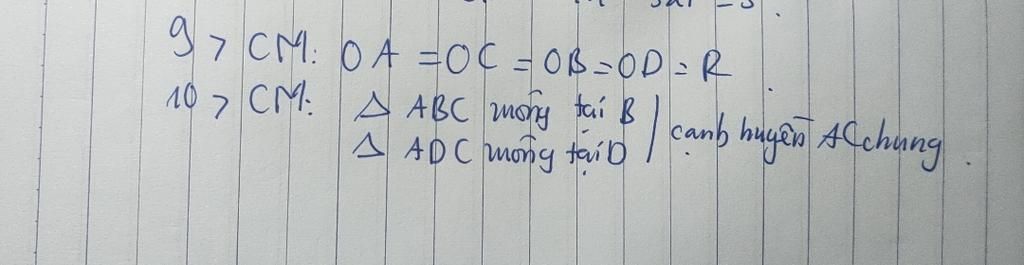 9> CM: OA = OC = OB = OD = R
10> CM: Δ ABC vuông tại B / cạnh huyền AC chung.
Δ ADC vuông tại D